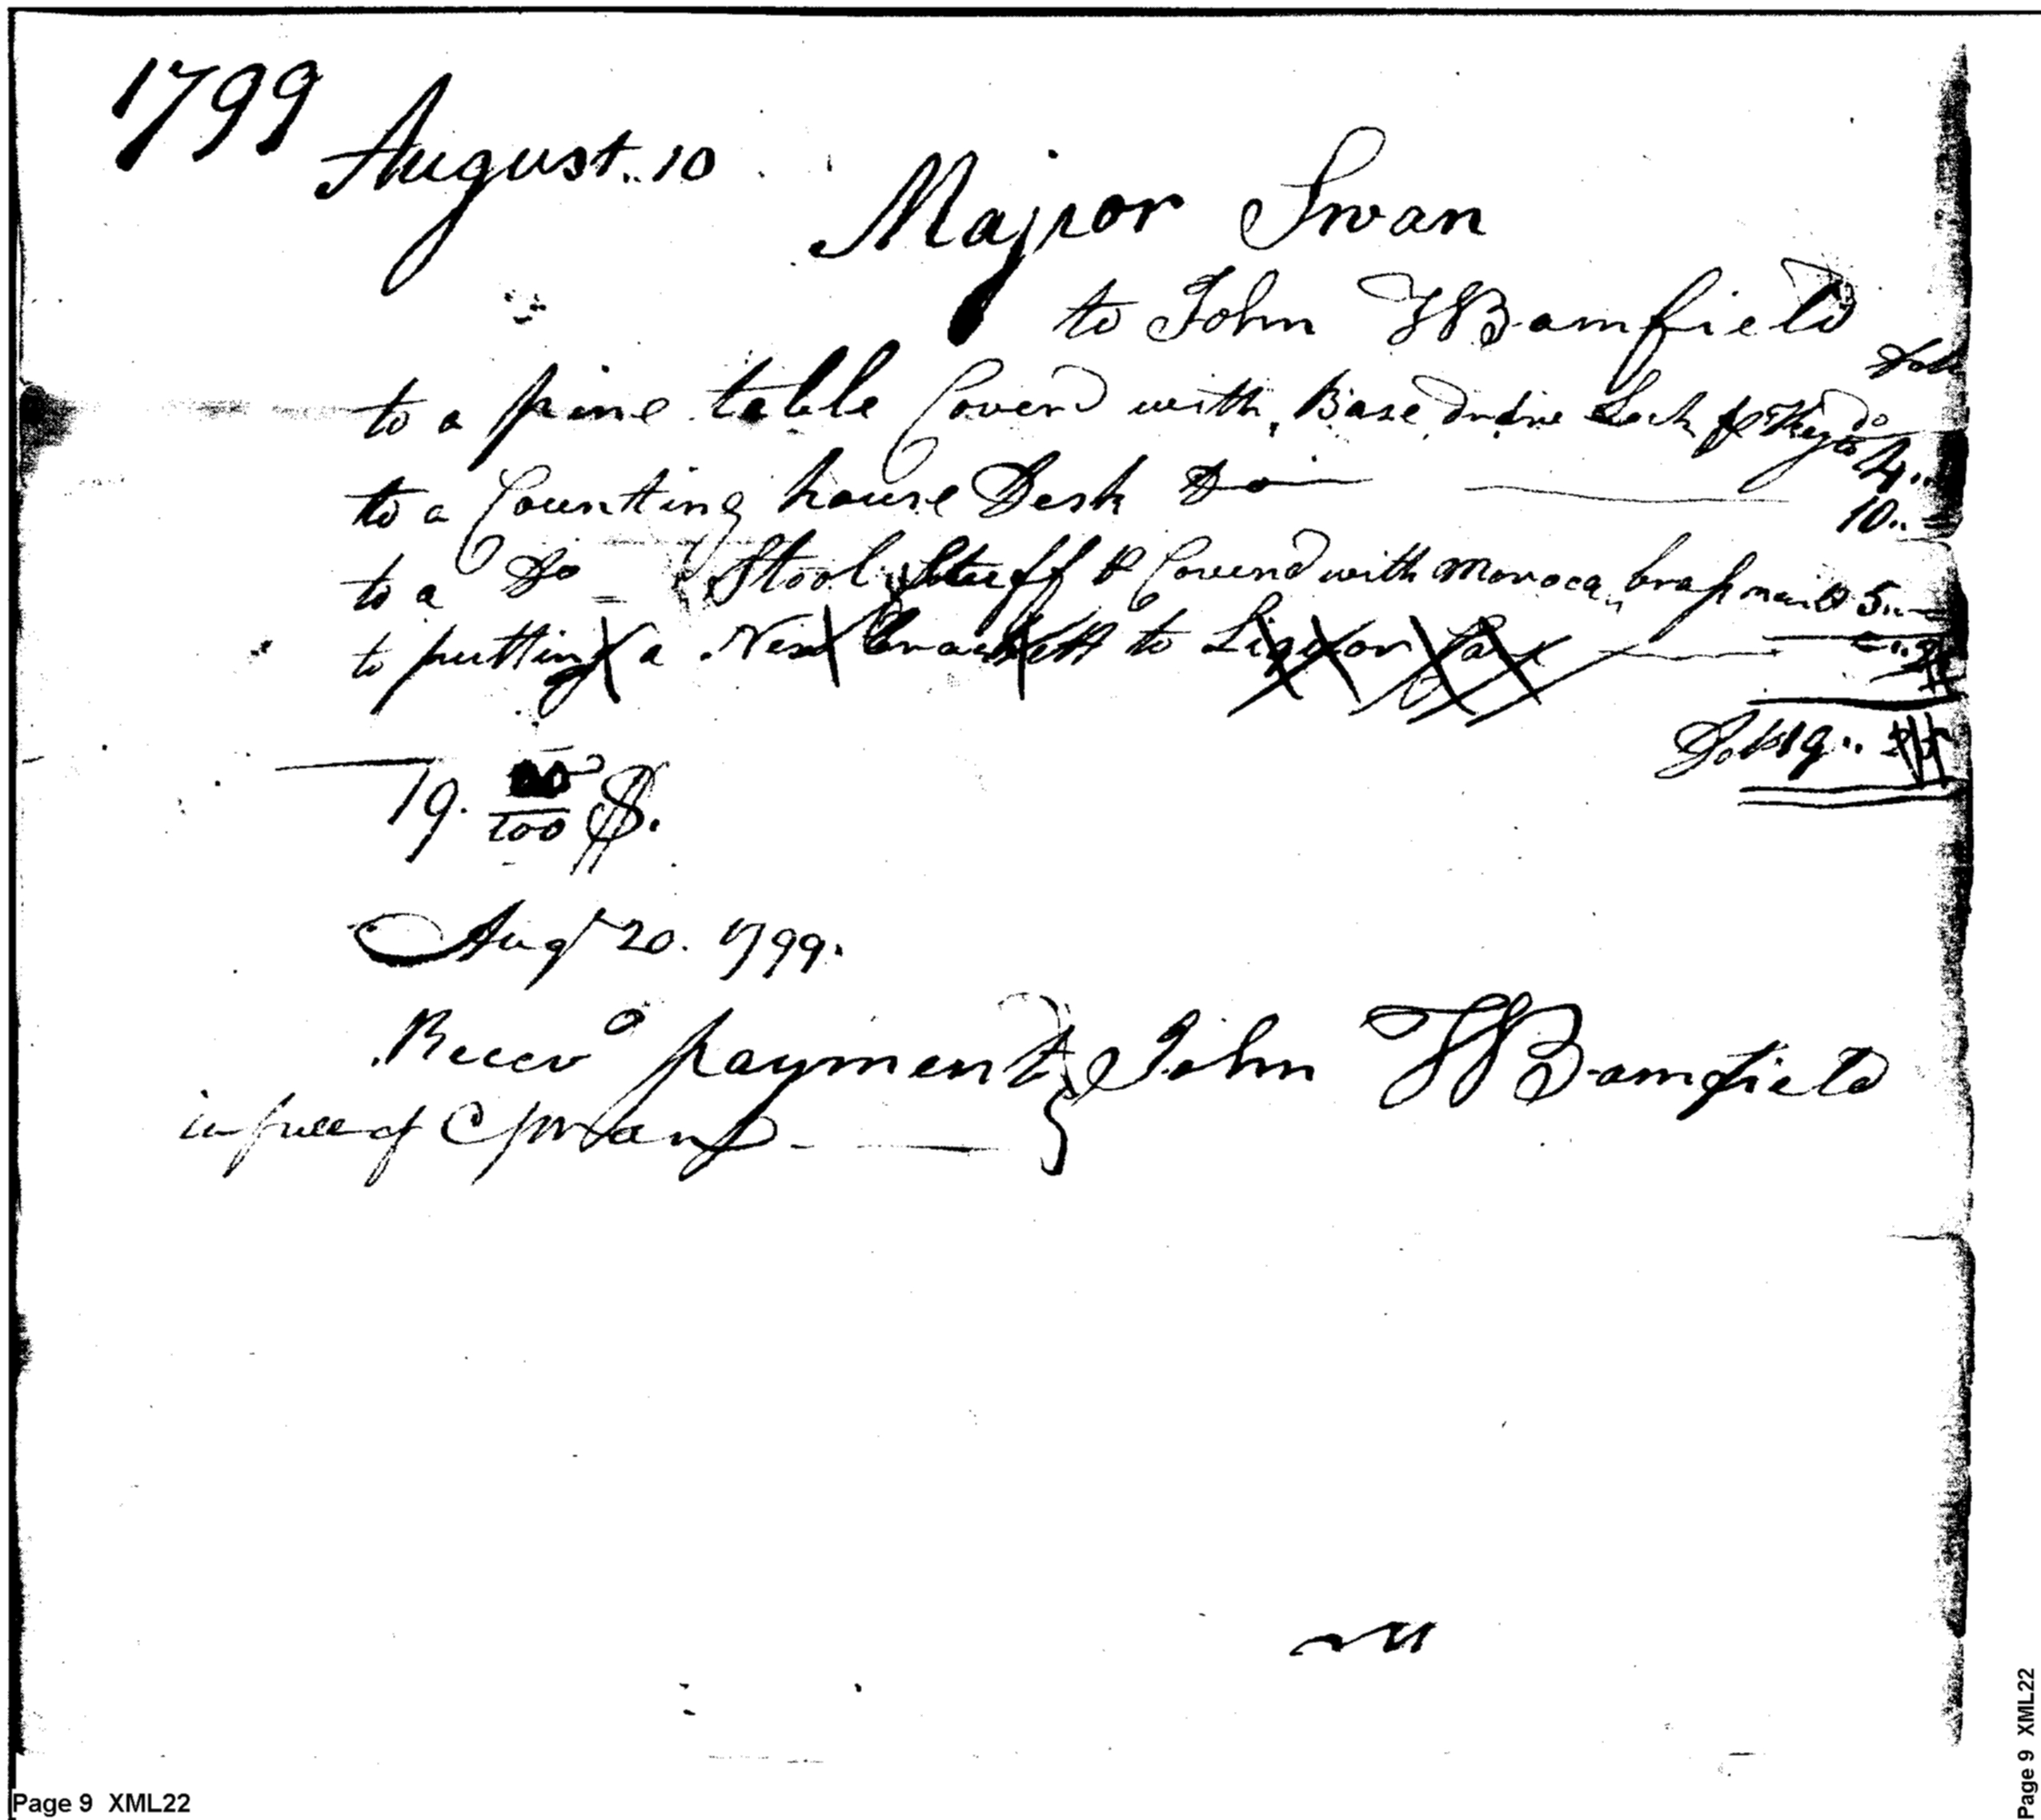 1799 August. 10
Majror Swan
to John W Bamfield
Dols
to a pine table Coverd with Base, Lock & Key 4..
to a Counting house Desk Do 10..
to a Do Stool Stuff & Coverd with Moroca, brass nails 5..
to putting a New to Liquor
Dols 19..
19. /100 $.
Augt 20. 1799.
Reecvd payment John W Bamfield
in full of C Swan
Page 9 XML22
Page 9 XML22